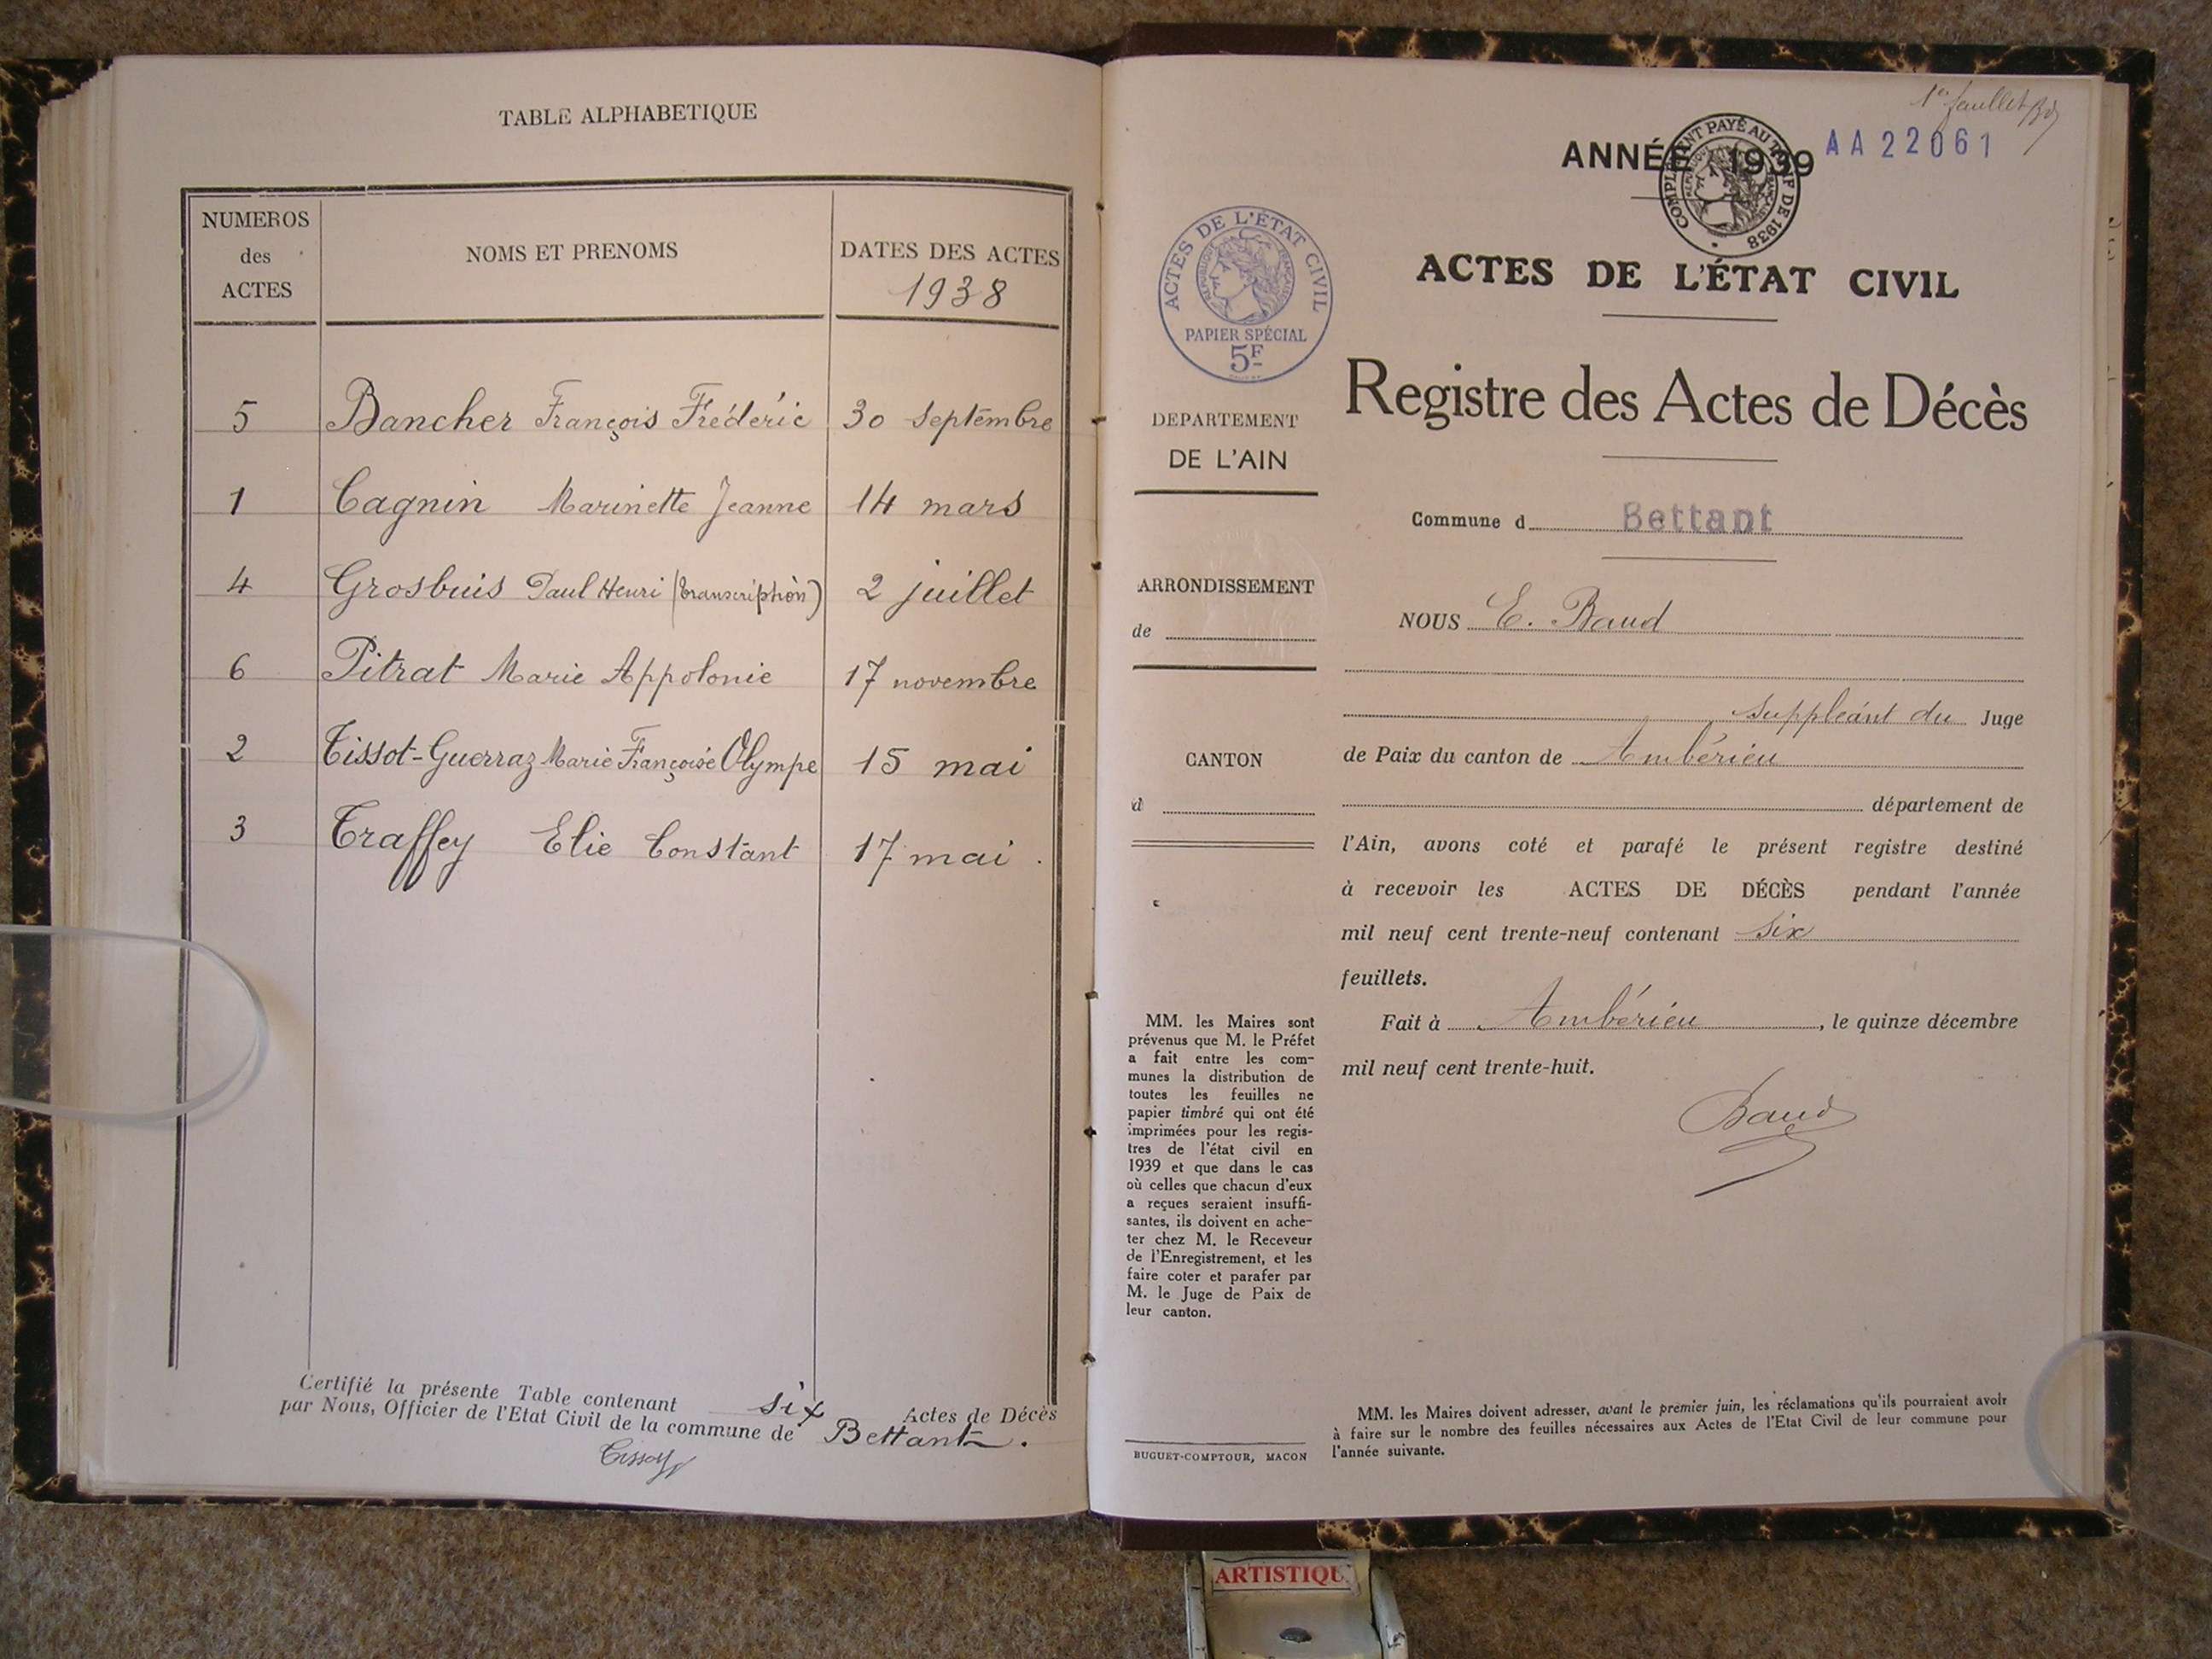 TABLE ALPHABETIQUE
NUMEROS
des
ACTES
NOMS ET PRENOMS
DATES DES ACTES
1938
5 Bancher François Frédéric 30 Septembre
1 Cagnin Marinette Jeanne 14 mars
4 Grosbuis Paul Henri (transcription) 2 juillet
6 Pitrat Marie Appolonie 17 novembre
2 Tissot-Guerraz Marie Françoise Olympe 15 mai
3 Traffey Elie Constant 17 mai.
Certifié la présente Table contenant six Actes de Décès
par Nous, Officier de l'Etat Civil de la commune de Bettant.
Tissot
1er feuillet
ANNÉE 1939
AA22061
COMPLEMENT PAYÉ AU TARIF DE 1938
REPUBLIQUE FRANÇAISE
ACTES DE L'ÉTAT CIVIL
REPUBLIQUE FRANÇAISE
PAPIER SPÉCIAL
5F
ACTES DE L'ÉTAT CIVIL
Registre des Actes de Décès
DEPARTEMENT
DE L'AIN
Commune d Bettant
ARRONDISSEMENT
de
CANTON
d
NOUS E. Baud
suppléant du Juge
de Paix du canton de Ambérieu
département de
l'Ain, avons coté et parafé le présent registre destiné
à recevoir les ACTES DE DÉCÈS pendant l'année
mil neuf cent trente-neuf contenant six
feuillets.
Fait à Ambérieu, le quinze décembre
mil neuf cent trente-huit.
Baud
MM. les Maires sont
prévenus que M. le Préfet
a fait entre les com-
munes la distribution de
toutes les feuilles ne
papier timbré qui ont été
imprimées pour les regis-
tres de l'état civil en
1939 et que dans le cas
où celles que chacun d'eux
a reçues seraient insuffi-
santes, ils doivent en ache-
ter chez M. le Receveur
de l'Enregistrement, et les
faire coter et parafer par
M. le Juge de Paix de
leur canton.
BUGUET-COMPTOUR, MACON
MM. les Maires doivent adresser, avant le premier juin, les réclamations qu'ils pourraient avoir
à faire sur le nombre des feuilles nécessaires aux Actes de l'Etat Civil de leur commune pour
l'année suivante.
ARTISTIQU